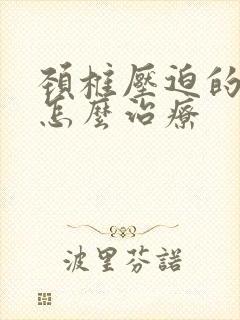 頚椎壓迫的
怎麼治療
波里芬諾